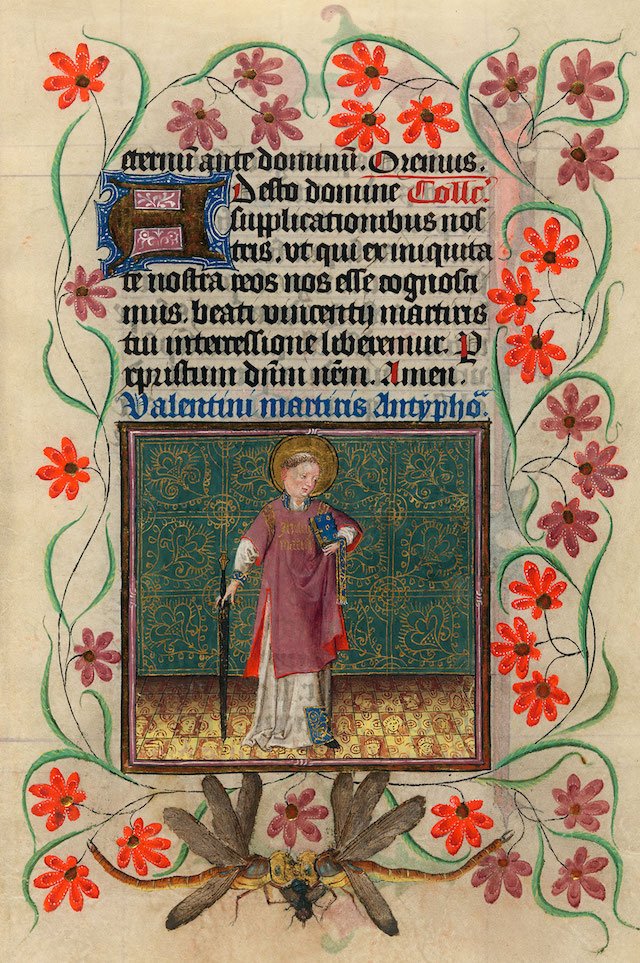 eternū ante dominū. Oremus.
ADesto domine Collc̄.
supplicationibus nos
tris. vt qui ex iniquita
te nostra reos nos esse cognosci
mus. beati vincentij martiris
tui intercessione liberemur. P
xpristum dn̄m nr̄m. Amen.
Valentini martiris Antyphoā.